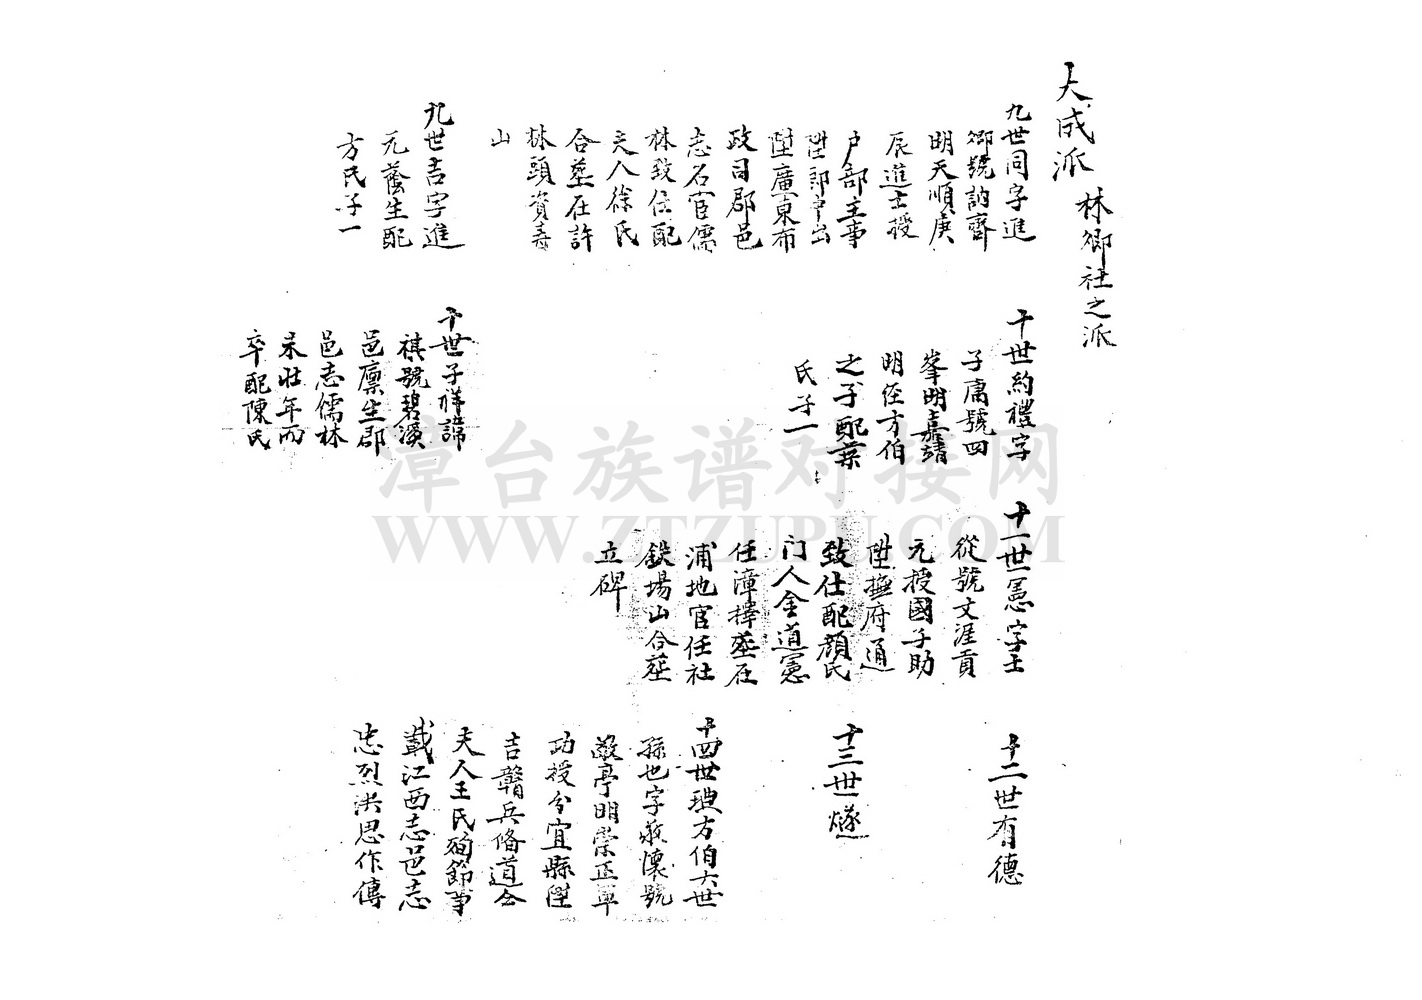 大成派
林鄉社之派
九世同字進
卿號訥齋
明天順庚
辰進士授
戶部主事
陞郎中出
陞廣東布
政司郡邑
志名宦儒
林致仕配
夫人徐氏
合塟在許
林頭資壽
山
九世吉字進
元蔭生配
方氏子一
十世約禮字
子庸號四
峯明嘉靖
明經方伯
之子配葉
氏子一
十世子祥諱
祺號碧溪
邑廩生郡
邑志儒林
未壯年而
卒配陳氏
十一世憲字王
從號文涯貢
元授國子助
陞撫府通
致仕配顏氏
门人金道憲
任漳擇塟在
浦地官任社
鉄場山合塟
立碑
十二世有德
十三世燧
十四世 方伯六世
孫也字 懷號
敬亭明崇正軍
功授分宜縣陞
吉贛兵備道仝
夫人王氏殉節事
載江西志邑志
忠烈洪思作傳
漳台族谱对接网
WWW.ZTZUPU.COM